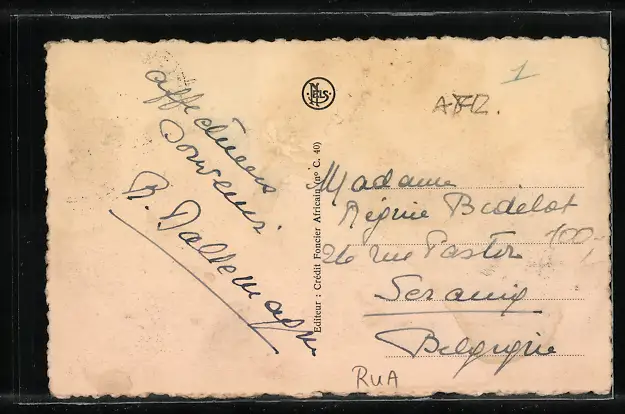 affectueux
souvenir.
R. Dallemagne
NELS
Editeur : Crédit Foncier Africain (n° C. 40)
1
Madame
Régine Bidelot
26 rue Pastor
100,-
Seraing
Belgique
RUA